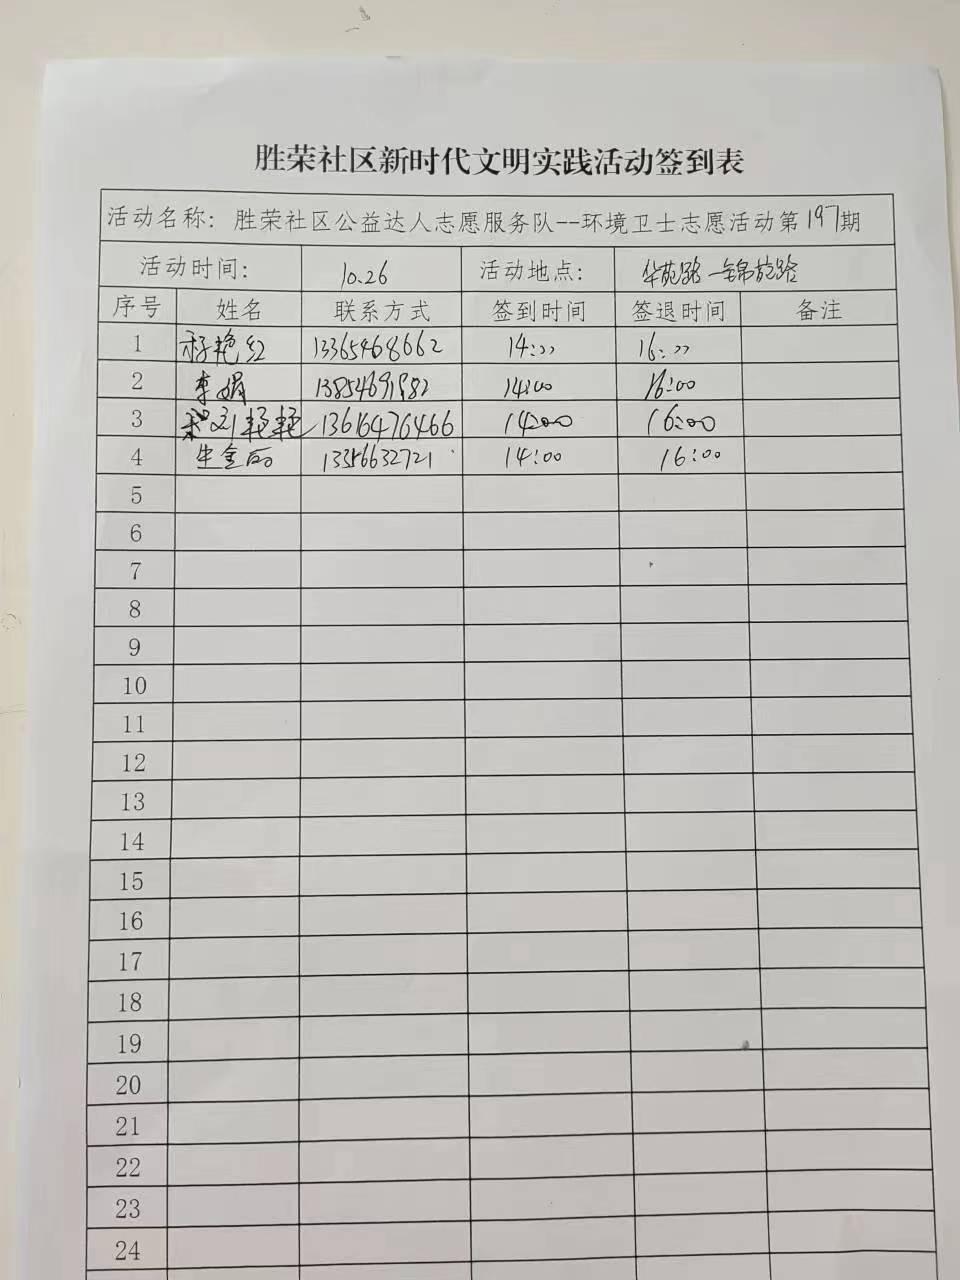 胜荣社区新时代文明实践活动签到表
活动名称: 胜荣社区公益达人志愿服务队--环境卫士志愿活动第197期
活动时间: 10.26 活动地点: 华苑路—锦苑路
序号 姓名 联系方式 签到时间 签退时间 备注
1 艳红 13365468662 14:00 16:00
2 李娟 13854691982 14:00 16:00
3 13616476466 14:00 16:00
4 生金 13356632721 14:00 16:00
5
6
7
8
9
10
11
12
13
14
15
16
17
18
19
20
21
22
23
24